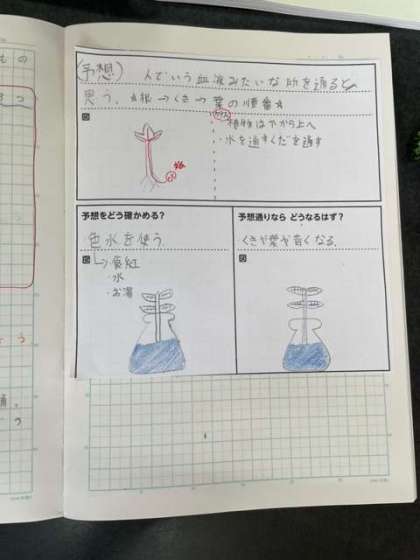 (予想) 人でいう血液みたいな所を通ると
思う。☆根→くき→葉の順番☆
図
植物は下から上へ
・水を通すくだを通す
予想をどう確かめる?
色水を使う
図
→食紅
・水
・お湯
予想通りなら どうなるはず?
くきや葉が青くなる。
図